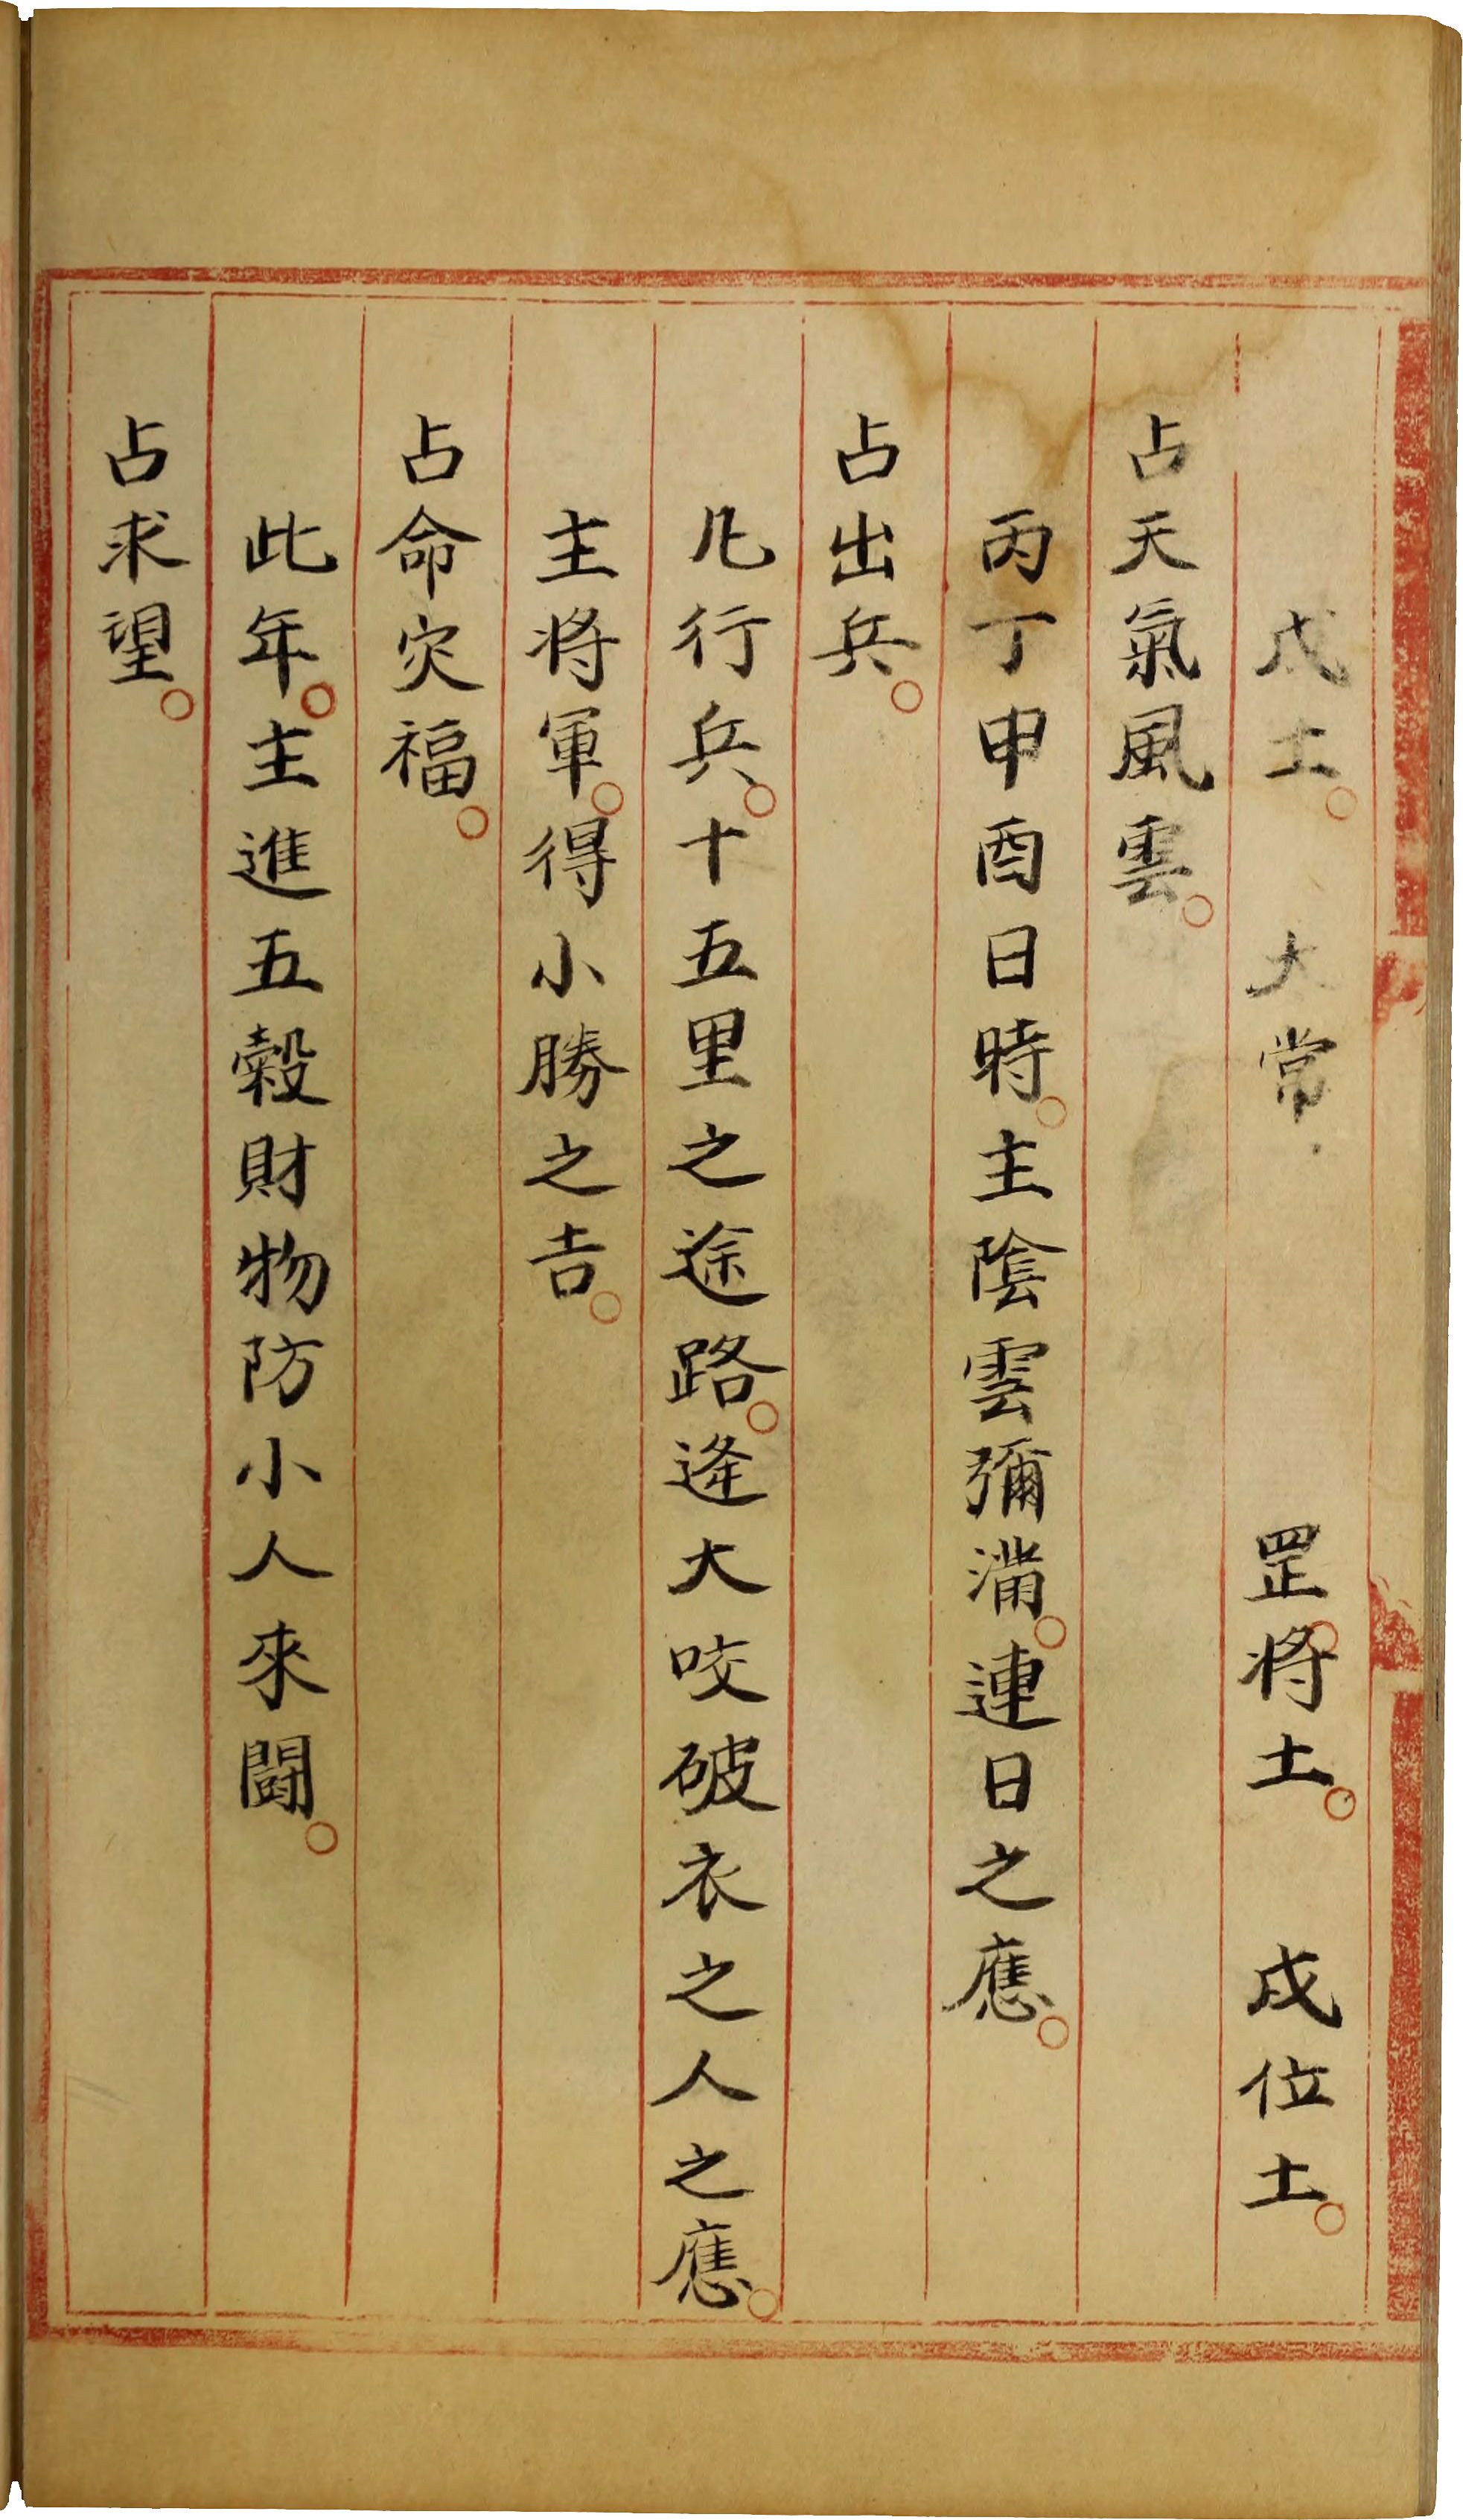 戊土。 大常 罡。将土。 戌位土。
占天氣風雲。
丙丁申酉日時。主陰雲彌滿。連日之應。
占出兵。
凡行兵。十五里之途路。逢大咬破衣之人之應。
主将軍。得小勝之吉。
占命灾福。
此年。主進五穀財物防小人來闘。
占求望。